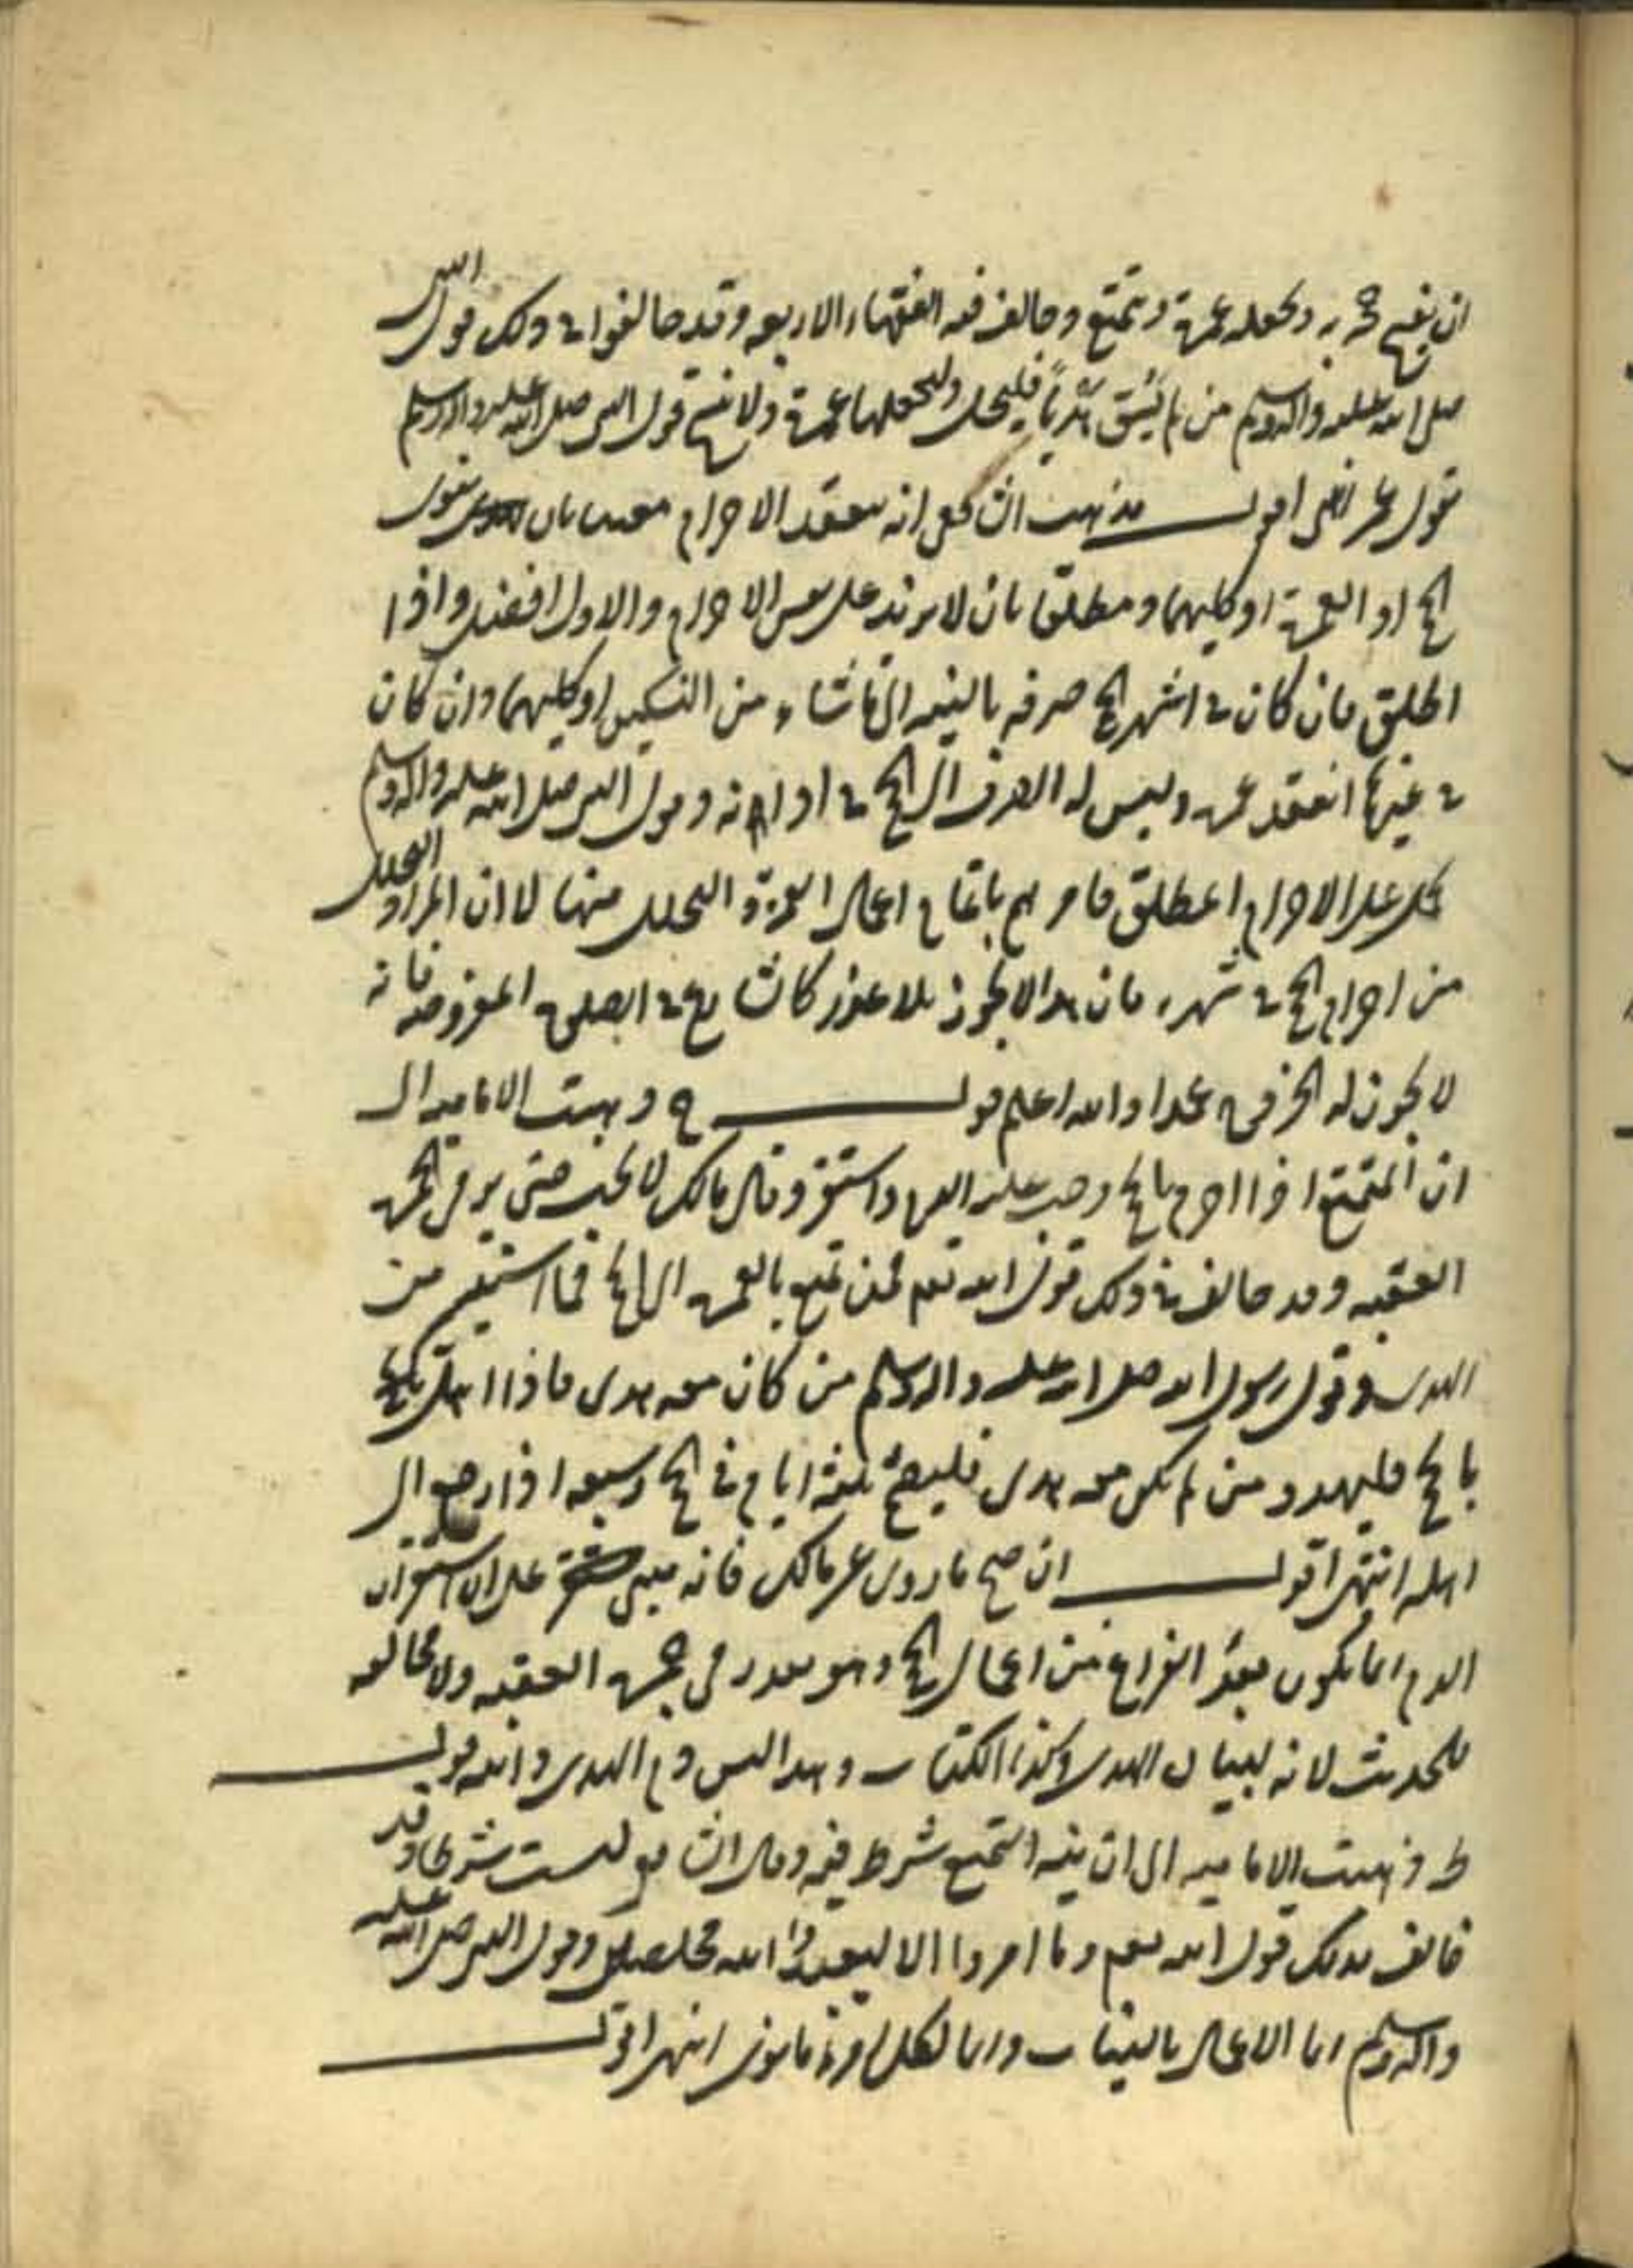 ان يفسخ حجه ويجعله عمرة وتمتع وخالف فيه الفقهاء الاربعة وقد خالفوا في ذلك قول النبي
صلى الله عليه وآله وسلم من لم يسق هديا فليحل وليجعلها عمرة ولا نسخ قول النبي صلى الله عليه وآله وسلم
قول عمر انتهى اقول مذهب الشافعي انه ينعقد الاحرام معينا بان ينوي
الحج او العمرة او كليهما ومطلقا بان لا يزيد على نفس الاحرام والاول افضل واذا
اطلق فان كان في اشهر الحج صرفه بالنية الى ما شاء من النسكين او كليهما وان كان
في غيرها انعقد عمرة وليس له الصرف الى الحج في اوانه وقول النبي صلى الله عليه وآله وسلم
يحمل على الاحرام المطلق فامرهم بايقاع اعمال العمرة والتحلل منها لا ان المراد التحلل
من احرام الحج في شهره فان هذا لا يجوز بلا عذر كالشارع في الصلوة المفروضة فانه
لا يجوز له الخروج عمدا والله اعلم قوله ح ذهبت الامامية الى
ان المتمتع اذا احرم بالحج وجب عليه الدم واستقر وقال مالك لا يجب حتى يرمي جمرة
العقبة وقد خالف في ذلك قول الله تعم فمن تمتع بالعمرة الى الحج فما استيسر من
الهدي وقول رسول الله صلى الله عليه وآله وسلم من كان معه هدي فاذا اهل
بالحج فليهد ومن لم يكن معه هدي فليصم ثلثة ايام في الحج وسبعة اذا رجع الى
اهله انتهى اقول ان صح ما روي عن مالك فانه مبني على ان استقرار
الدم انما يكون بعد الفراغ من اعمال الحج وهو بعد رمي جمرة العقبة ولا مخالفة
للحديث لانه لبيان الهدي وكذا الكتاب وهذا ليس دم الهدي والله قوله
ط ذهبت الامامية الى ان نية التمتع شرط فيه وقال الشافعي ليست شرطا وقد
خالف بذلك قول الله تعم وما امروا الا ليعبدوا الله مخلصين وقول النبي صلى الله عليه
وآله وسلم انما الاعمال بالنيات وانما لكل امرئ ما نوى انتهى اقول